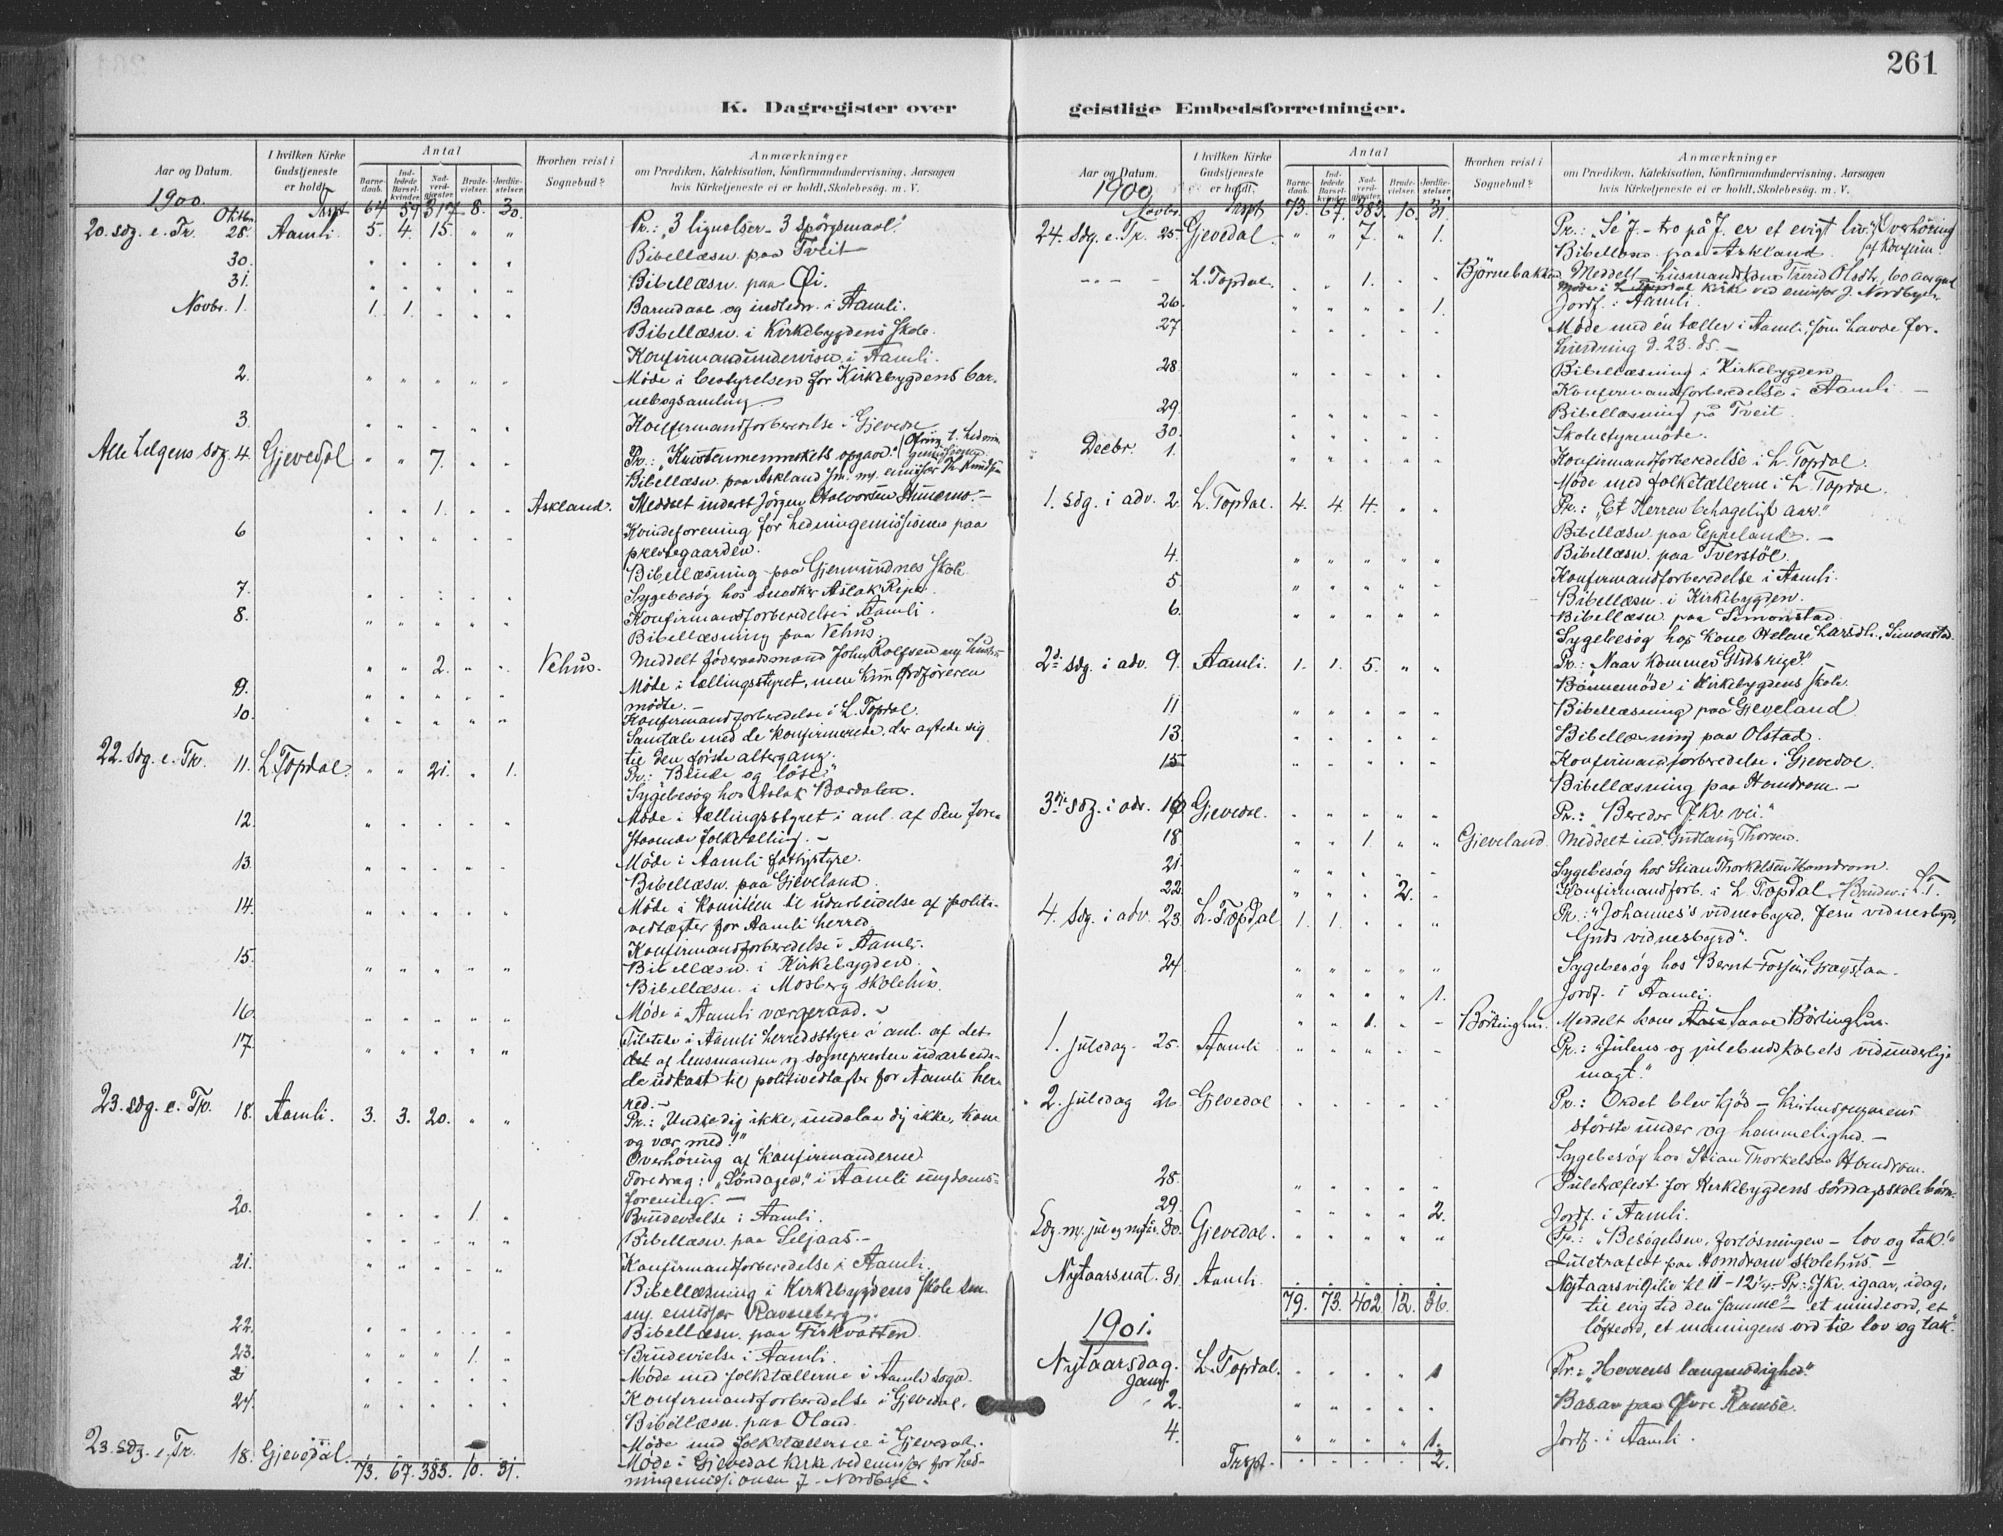 261
K. Dagregister over geistlige Embedsforretninger.
Aar og Datum.
I hvilken Kirke Gudstjeneste er holdt.
Antal
Barnedaab.
Indledede Barselkvinder.
Nadverdgjester
Brudevielser.
Jordfæstelser
Hvorhen reist i Sognebud?
Anmærkninger
om Prædiken, Katekisation, Konfirmandundervisning, Aarsagen
hvis Kirketjeneste ei er holdt, Skolebesøg. m. V.
1900 Oktbr. Trspt 64 59 317 8. 30.
20. sdg. e. Tr. 28. Aamli. 5. 4. 15. " " Pr.: "3 lignelser - 3 spørgsmaal."
Bibellæsn. paa Tveit
30. Bibellæsn. paa Øi.
31.
Novbr. 1. 1 1 Barnedaab og indledn. i Aamli.
Bibellæsn. i Kirkebygdens Skole.
Konfirmandundervisn. i Aamli.
2. Møde i bestyrelsen for Kirkebygdens bar-
nebogsamling.
3. Konfirmandforberedelse i Gjevedal
Alle helgens sdg. 4. Gjevedal " " 7. " " Pr.: "Kristenmenneskets opgave."
Bibellæsn. paa Askland
1. Askland. Meddelt inderst Jørgen Halvorsen
6 Kvindeforening for hedningemissionen paa
prestegaarden.
Bibellæsning paa Gjermundnes Skole
7. Sygebesøg hos snedker Aslak Ripe
8. Konfirmandforberedelse i Aamli.
Bibellæsning paa Vehus.
2. Vehus. Meddelt føderaadsmand John Rolfsen
9. Møde i tællingsstyret, men kun Ordføreren
mødte. -
10. Konfirmandforberedelse i L. Topdal.
Samtale med de konfirmerede, der agtede sig
til den første altergang.
22. Sdg. e. Tr. 11. L. Topdal. " " 21. " 1. Pr.: "Binde og løse."
Sygebesøg hos Aslak Bærdalen.
12. Møde i tællingsstyret i anl. af den fore-
staaende folketælling. -
13. Møde i Aamli fattigstyre.
Bibellæsn. paa Gjeveland.
14. Møde i Komitéen til udarbeidelse af politi-
vedtægter for Aamli herred.
Konfirmandforberedelse i Aamli.
15. Bibellæsn. i Kirkebygden.
Bibellæsn. i Mosberg skolehus.
16. Møde i Aamli værgeraad. -
17. Tilstede i Aamli herredsstyre i anl. af det
af lensmanden og sognepresten udarbeide-
de udkast til politivedtægter for Aamli her-
red. -
23. Sdg. e. Tr. 18. Aamli. 3. 3. 20. " " Pr.: "Undse dig ikke, undslaa dig ikke, kom
og vær med!"
Overhøring af konfirmanderne
Foredrag: "Søndagen," i Aamli ungdoms-
forening. -
20. 1. Brudevielse i Aamli.
Bibellæsn. paa Seljaas. -
21. Konfirmandforberedelse i Aamli.
Bibellæsning i Kirkebygdens Skole
22. Bibellæsn. paa
23. 1. Brudevielse i Aamli.
Møde med folketællerne i Aamli Sogn.
24. Konfirmandforberedelse i Gjevedal.
Bibellæsn. paa Oland.
Møde med folketællerne i Gjevedal.
23. sdg. e. Tr. 18. Gjevedal 73. 67. 383. 10. 31. Møde i Gjevedal kirke ved emissær for hed-
ningemissionen J. Nordbye.
Aar og Datum.
I hvilken Kirke Gudstjeneste er holdt.
Antal
Barnedaab.
Indledede Barselkvinder.
Nadverdgjester
Brudevielser.
Jordfæstelser
Hvorhen reist i Sognebud?
Anmærkninger
om Prædiken, Katekisation, Konfirmandundervisning, Aarsagen
hvis Kirketjeneste ei er holdt, Skolebesøg. m. V.
1900 Novbr. Trspt 73. 67. 383. 10. 31.
24. Sdg. e. Tr. 25. Gjevedal. " " 7. " 1. Pr.: "Se J. - tro på J. er et evigt liv." Overhøring
af Konfirm.
Bibellæsn. paa Askland.
L. Topdal. 1. Bjørnebakken. Meddelt husmandskone
Møde i L. Topdal kirke ved emissær J. Nordbye.
26. 1. Jordf. i Aamli.
27. Møde med én tæller i Aamli, som havde for-
hindring d. 23. ds. -
28. Bibellæsning i Kirkebygden
Konfirmandforberedelse i Aamli. -
29. Bibellæsning på Tveit.
30. Skolestyremøde.
Decbr. 1. Konfirmandforberedelse i L. Topdal.
Møde med folketællerne i L. Topdal.
1. Sdg. i adv. 2. L. Topdal. 4. 4. 4. " " Pr.: "Et Herrens behageligt aar."
Bibellæsn. paa Eppeland. -
4. Bibellæsn. paa Tverstøl.
5. Konfirmandforberedelse i Aamli.
Bibellæsn. i Kirkebygden.
6. Bibellæsn. paa Simonstad.
Sygebesøg hos kone Helene Larsdt., Simonstad.
2d. sdg. i adv. 9. Aamli. 1. 1. 5. " " Pr.: "Naar kommer Guds rige?"
Børnemøde i Kirkebygdens skole.
11 Bibellæsning paa Gjeveland.
13. Bibellæsning paa Olstad.
15 Konfirmandforberedelse i Gjevedal.
Bibellæsning paa Homdrom. -
3die sdg. i adv. 16 Gjevedal. Pr.: "Bereder J. Kr. vei."
18 1. Gjeveland. Meddelt ind. Gudlaug Thorsen.
21. Sygebesøg hos Stian Thorkelsen Homdrom.
22. 2. Konfirmandforb. i L. Topdal. Brudev. i L. T.
4. Sdg. i adv. 23. L. Topdal 1. 1. Pr.: "Johannes's vidnesbyrd, Jesu vidnesbyrd,
Guds vidnesbyrd".
24 Sygebesøg hos Bernt
1. Jordf. i Aamli.
1. Børtinghus. Meddelt kone Saave Børtinghus.
1. juledag. 25. Aamli Pr.: "Julens og julebudskabets vidunderlige
magt."
2. juledag 26. Gjevedal Pr.: Ordet blev kjød - Kristendommens
største under og hemmelighed. -
Sygebesøg hos Stian Thorkelsen Homdrom.
28. Juletræfest for Kirkebygdens søndagsskolebørn.
29. 2. Jordf. i Aamli.
Sdg. m. jul og nytår. 30. Gjevedal. Pr.: "Besøgelsen, forløsningen - lov og tak!"
Juletræfest paa Homdrom skolehus. -
Nytaarsnat. 31. Aamli. Nytaarsvigilie kl 11 - 12 1/4. Pr: "J. Kr. igaar, idag,
til evig tid den samme" - et mindeord, et
løfteord, et maningens ord til lov og tak."
79. 73. 402. 12. 36.
1901.
Nytaarsdag. L. Topdal. 1 Pr.: "Herrens langmodighed."
Janr. 2. Basar paa Øvre Ramse.
4. 1. Jordf. i Aamli.
Trspt. 2.